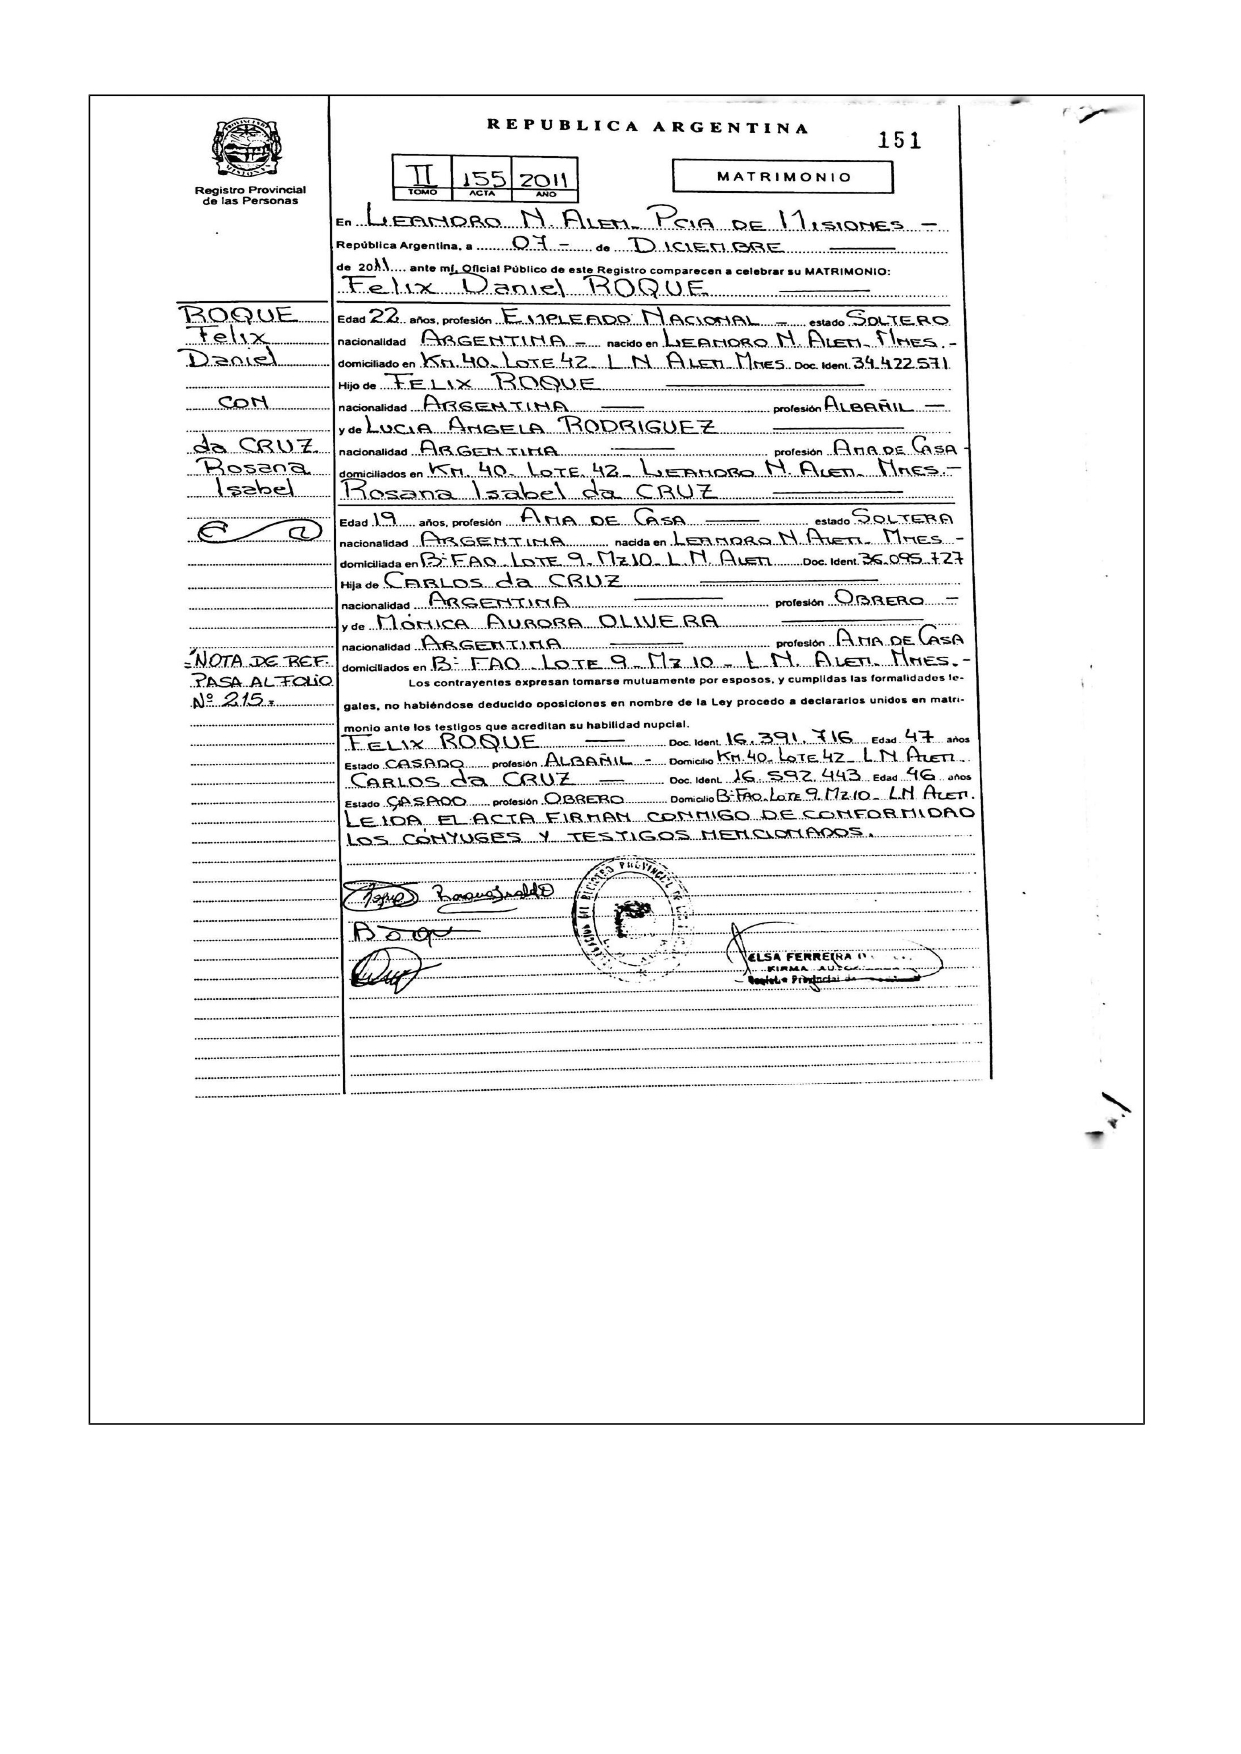 REPUBLICA ARGENTINA
151
Registro Provincial
de las Personas
II 155 2011
TOMO ACTA AÑO
MATRIMONIO
En LEANDRO N. ALEM. PCIA DE MISIONES -
República Argentina, a 07 - de DICIEMBRE
de 2011 ante mí, Oficial Público de este Registro comparecen a celebrar su MATRIMONIO:
Felix Daniel ROQUE
ROQUE
Felix
Daniel
CON
da CRUZ
Rosana
Isabel
Edad 22 años, profesión EMPLEADO NACIONAL - estado SOLTERO
nacionalidad ARGENTINA - nacido en LEANDRO N. ALEM. MNES. -
domiciliado en KM. 40. LOTE 42. L N. ALEM MNES. Doc. Ident. 34.422.571
Hijo de FELIX ROQUE
nacionalidad ARGENTINA profesión ALBAÑIL -
y de LUCIA ANGELA RODRIGUEZ
nacionalidad ARGENTINA profesión AMA DE CASA -
domiciliados en KM. 40. LOTE 42. LEANDRO N. ALEM. MNES. -
Rosana Isabel da CRUZ
Edad 19 años, profesión AMA DE CASA estado SOLTERA
nacionalidad ARGENTINA nacida en LEANDRO N. ALEM. MNES -
domiciliada en B: FAO. LOTE 9. MZ 10. L.N. ALEM Doc. Ident. 36.095.727
Hija de CARLOS da CRUZ
nacionalidad ARGENTINA profesión OBRERO -
y de MÓNICA AURORA OLIVERA
nacionalidad ARGENTINA profesión AMA DE CASA
domiciliados en B: FAO. LOTE 9. MZ 10 - L N. ALEM. MNES. -
NOTA DE REF.
PASA AL FOLIO
Nº 215.
Los contrayentes expresan tomarse mutuamente por esposos, y cumplidas las formalidades le-
gales, no habiéndose deducido oposiciones en nombre de la Ley procedo a declararlos unidos en matri-
monio ante los testigos que acreditan su habilidad nupcial.
FELIX ROQUE Doc. Ident. 16.391.716 Edad 47 años
Estado CASADO profesión ALBAÑIL - Domicilio KM. 40. LOTE 42. L N ALEM.
CARLOS da CRUZ Doc. Ident. 16.592.443 Edad 46 años
Estado CASADO profesión OBRERO Domicilio B: FAO. LOTE 9. MZ 10 - LN ALEM.
LEIDA EL ACTA FIRMAN CONMIGO DE CONFORMIDAD
LOS CÓNYUGES Y TESTIGOS MENCIONADOS.
ELSA FERREIRA
FIRMA